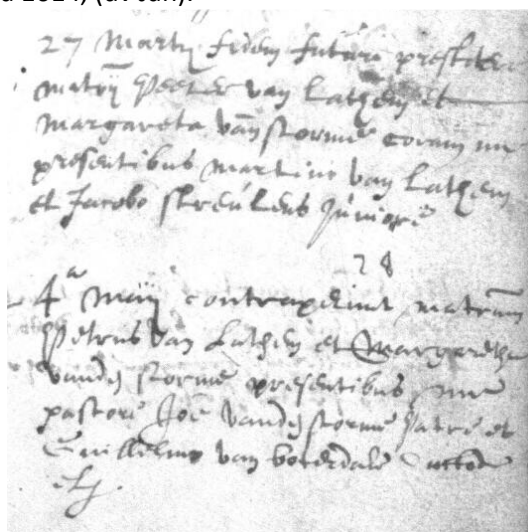 27 Martij fidem futuri prestiter
matrij Peeter van Lathem et
Margareta van storme coram me
presentibus Martino van Lathem
et Jacobo streulens juniore
28
4a Maij contraxerunt matrium
Petrus van Lathem et Margareta
vanden storme presentibus me
pastore Joe vanden storme patre et
Guillelmo van
etc.